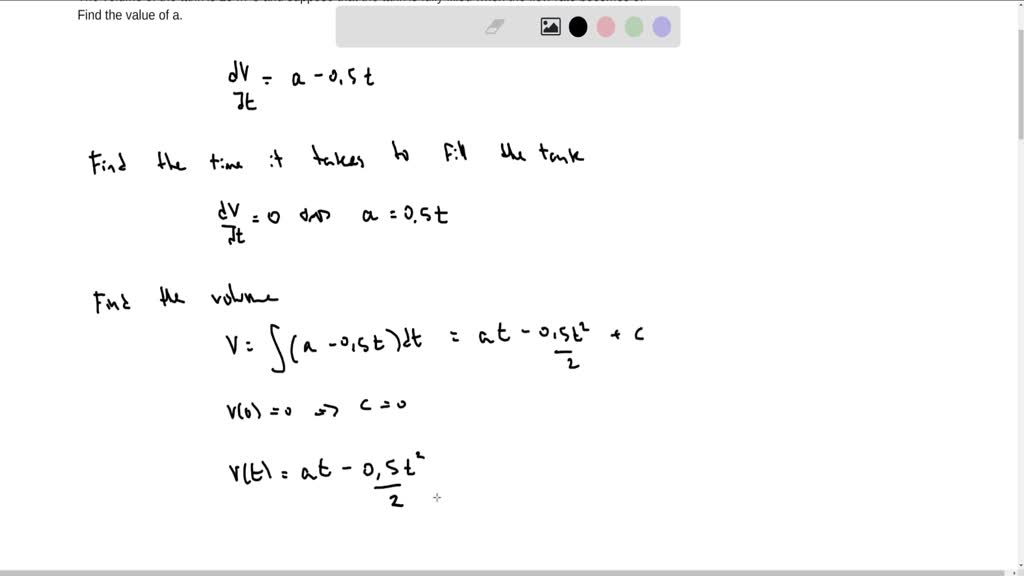 Find the value of a.
dV/dt = a - 0,5t
Find the time it takes to fill the tank
dV/dt = 0 a = 0,5t
Find the volume
V = ∫(a - 0,5t)dt = at - 0,5t²/2 + c
V(0) = 0 => c = 0
V(t) = at - 0,5t²/2